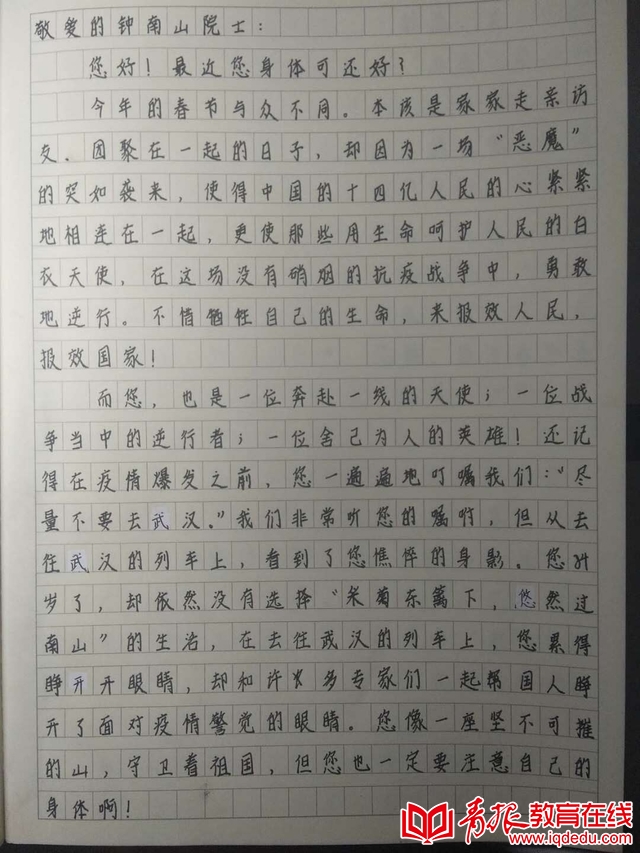 敬爱的钟南山院士：
您好！最近您身体可还好？
今年的春节与众不同。本该是家家走亲访
友、团聚在一起的日子，却因为一场“恶魔”
的突如袭来，使得中国的十四亿人民的心紧紧
地相连在一起，更使那些用生命呵护人民的白
衣天使，在这场没有硝烟的抗疫战争中，勇敢
地逆行。不惜牺牲自己的生命，来报效人民，
报效国家！
而您，也是一位奔赴一线的天使；一位战
争当中的逆行者；一位舍己为人的英雄！还记
得在疫情爆发之前，您一遍遍地叮嘱我们：“尽
量不要去武汉。”我们非常听您的嘱咐，但从去
往武汉的列车上，看到了您憔悴的身影。您84
岁了，却依然没有选择“采菊东篱下，悠然过
南山”的生活，在去往武汉的列车上，您累得
睁开开眼睛，却和许多专家们一起帮国人睁
开了面对疫情警觉的眼睛。您像一座坚不可推
的山，守卫着祖国，但您也一定要注意自己的
身体啊！
青报教育在线
www.iqdedu.com